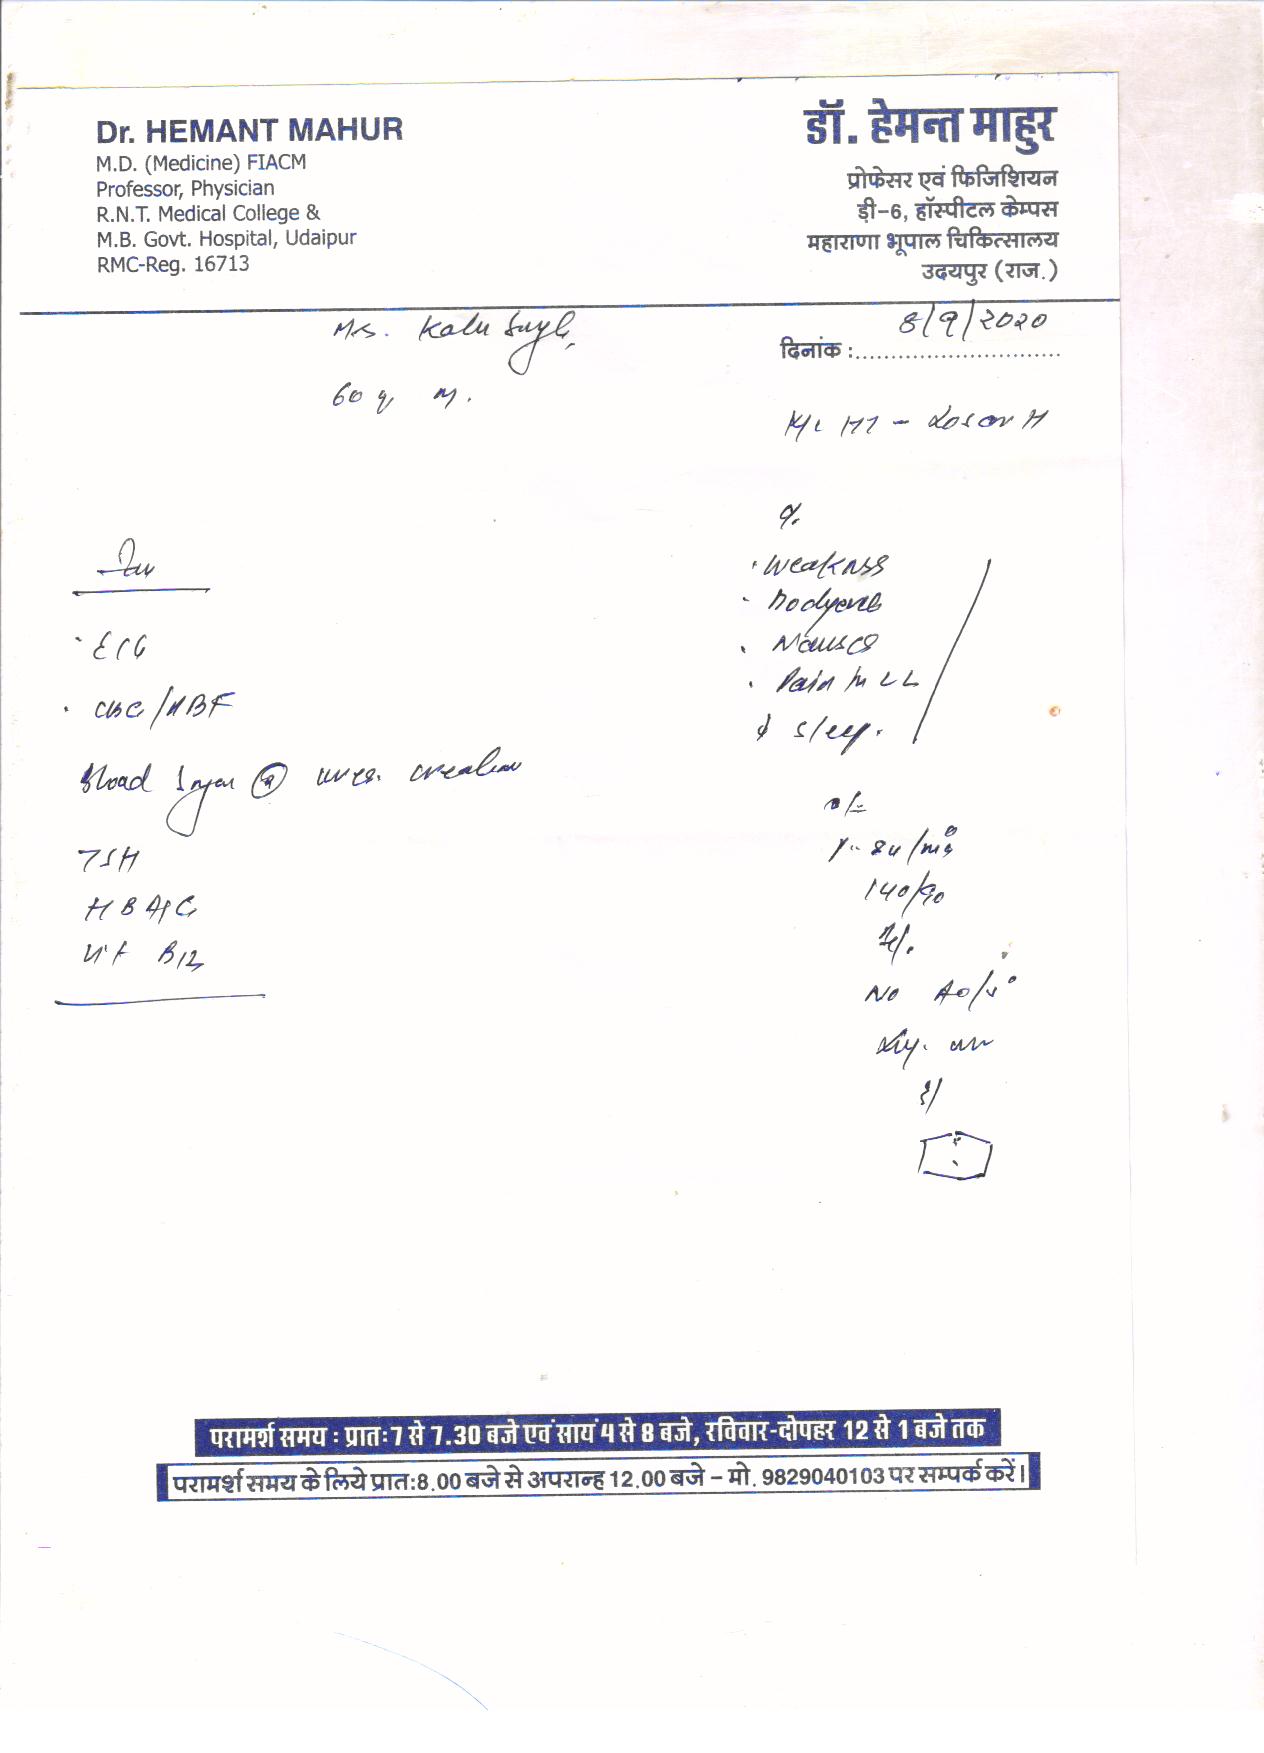 Dr. HEMANT MAHUR
M.D. (Medicine) FIACM
Professor, Physician
R.N.T. Medical College &
M.B. Govt. Hospital, Udaipur
RMC-Reg. 16713
डॉ. हेमन्त माहुर
प्रोफेसर एवं फिजिशियन
डी-6, हॉस्पीटल केम्पस
महाराणा भूपाल चिकित्सालय
उदयपुर (राज.)
Kalu
8/9/2020
दिनांक :............................
60 y M.
Losar H
Weakness
Bodyache
Nausea
Pain in LL
sleep.
ECG
CBC/
Blood Sugar urea creatinine
TSH
HBA1C
Vit B12
140/90
No
परामर्श समय : प्रातः 7 से 7.30 बजे एवं सायं 4 से 8 बजे, रविवार-दोपहर 12 से 1 बजे तक
परामर्श समय के लिये प्रात:8.00 बजे से अपरान्ह 12.00 बजे – मो. 9829040103 पर सम्पर्क करें।